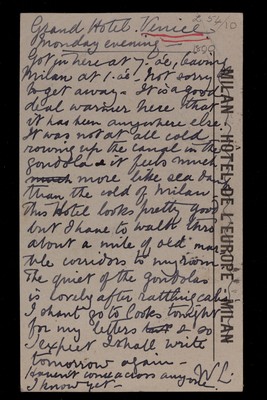 Grand Hotel. Venice.
Monday evening -
Got in here at 7. , leaving
Milan at 1. - Not sorry
to get away - It is a good
deal warmer here than
it has been anywhere else.
It was not at all cold
rowing up the canal in the
gondola & it feels much
much more like sea
than the cold of Milan.
This Hotel looks pretty good
but I have to walk thro'
about a mile of old mar
ble corridors to my room
The quiet of the gondolas
is lovely after rattling cabs
I shant go to Cooks tonight
for my letters & so
I expect I shall write
tomorrow again -
Havent come across anyone
I know yet - W L.
MILAN - HÔTEL DE L'EUROPE - MILAN